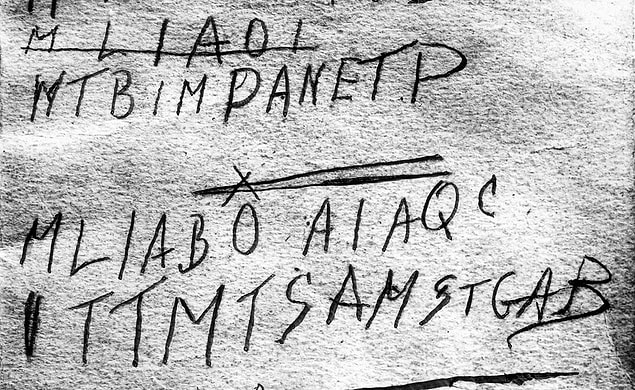 MLIAOI
NTBIMPANETP
MLIABO AIAQC
ITTMTSAMSTGAB